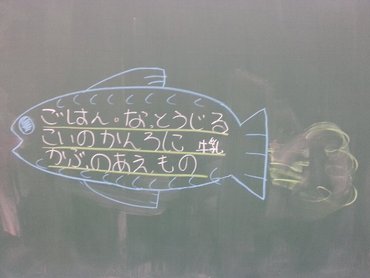 ごはん。なっとうじる
こいのかんろに 牛乳
かぶのあえもの